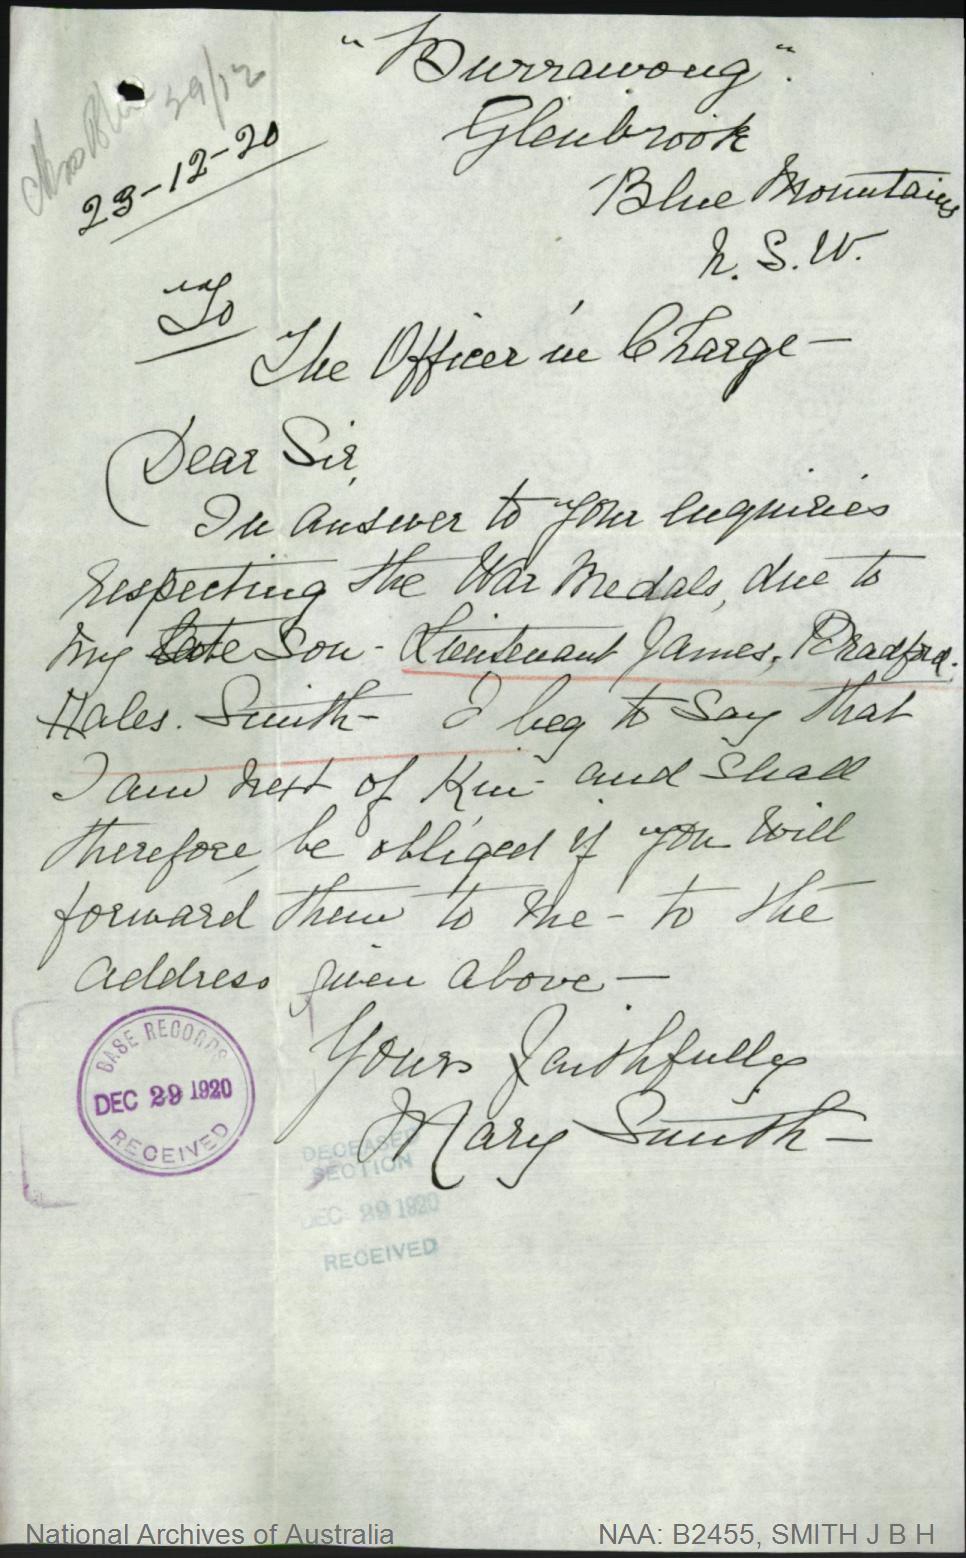 "Burrawong".
Glenbrook
Blue Mountains
N. S. W.
29/12
23-12-20
To
The Officer in Charge —
Dear Sir,
In answer to your enquiries
respecting the War Medals, due to
my late Son - Lieutenant James, Bradford.
Hales. Smith - I beg to say that
I am next of Kin - and shall
therefore, be obliged if you will
forward them to me - to the
address given above —
Yours Faithfully
Mary Smith —
BASE RECORDS
DEC 29 1920
RECEIVED
DECEASED
SECTION
DEC 29 1920
RECEIVED
National Archives of Australia
NAA: B2455, SMITH J B H